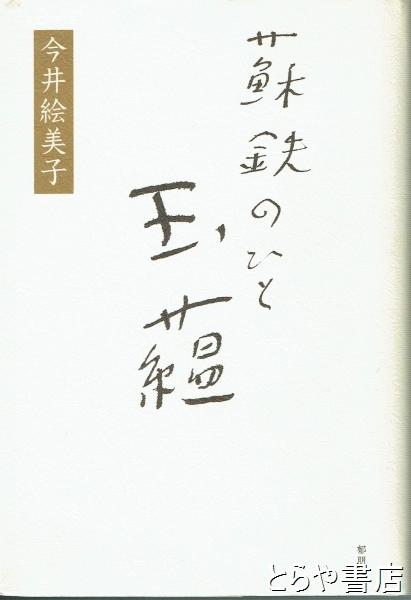 蘇鉄のひと
玉蘊
今井絵美子
郁朋
とらや書店